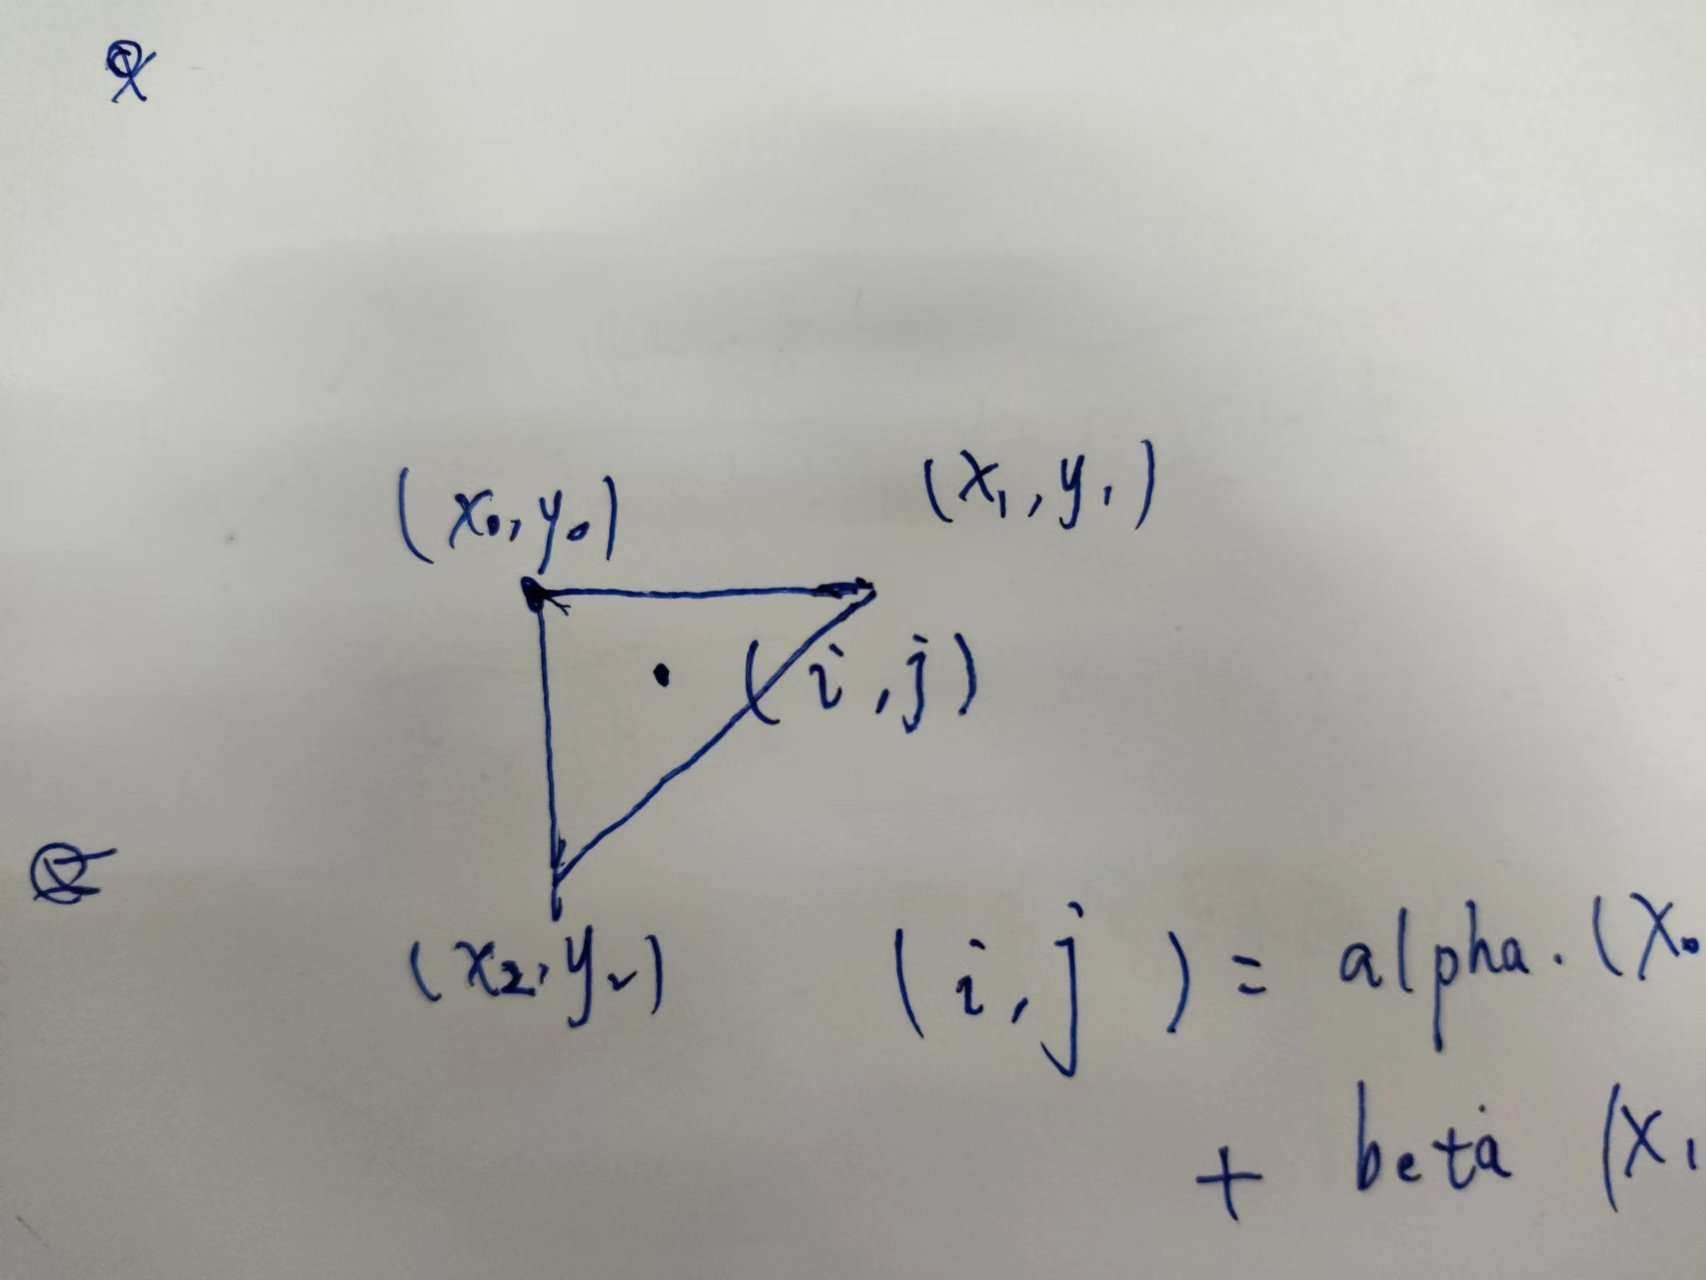 (x₀, y₀) (x₁, y₁)
(i, j)
(x₂, y₂) (i, j) = alpha. (x₀
+ beta (x₁